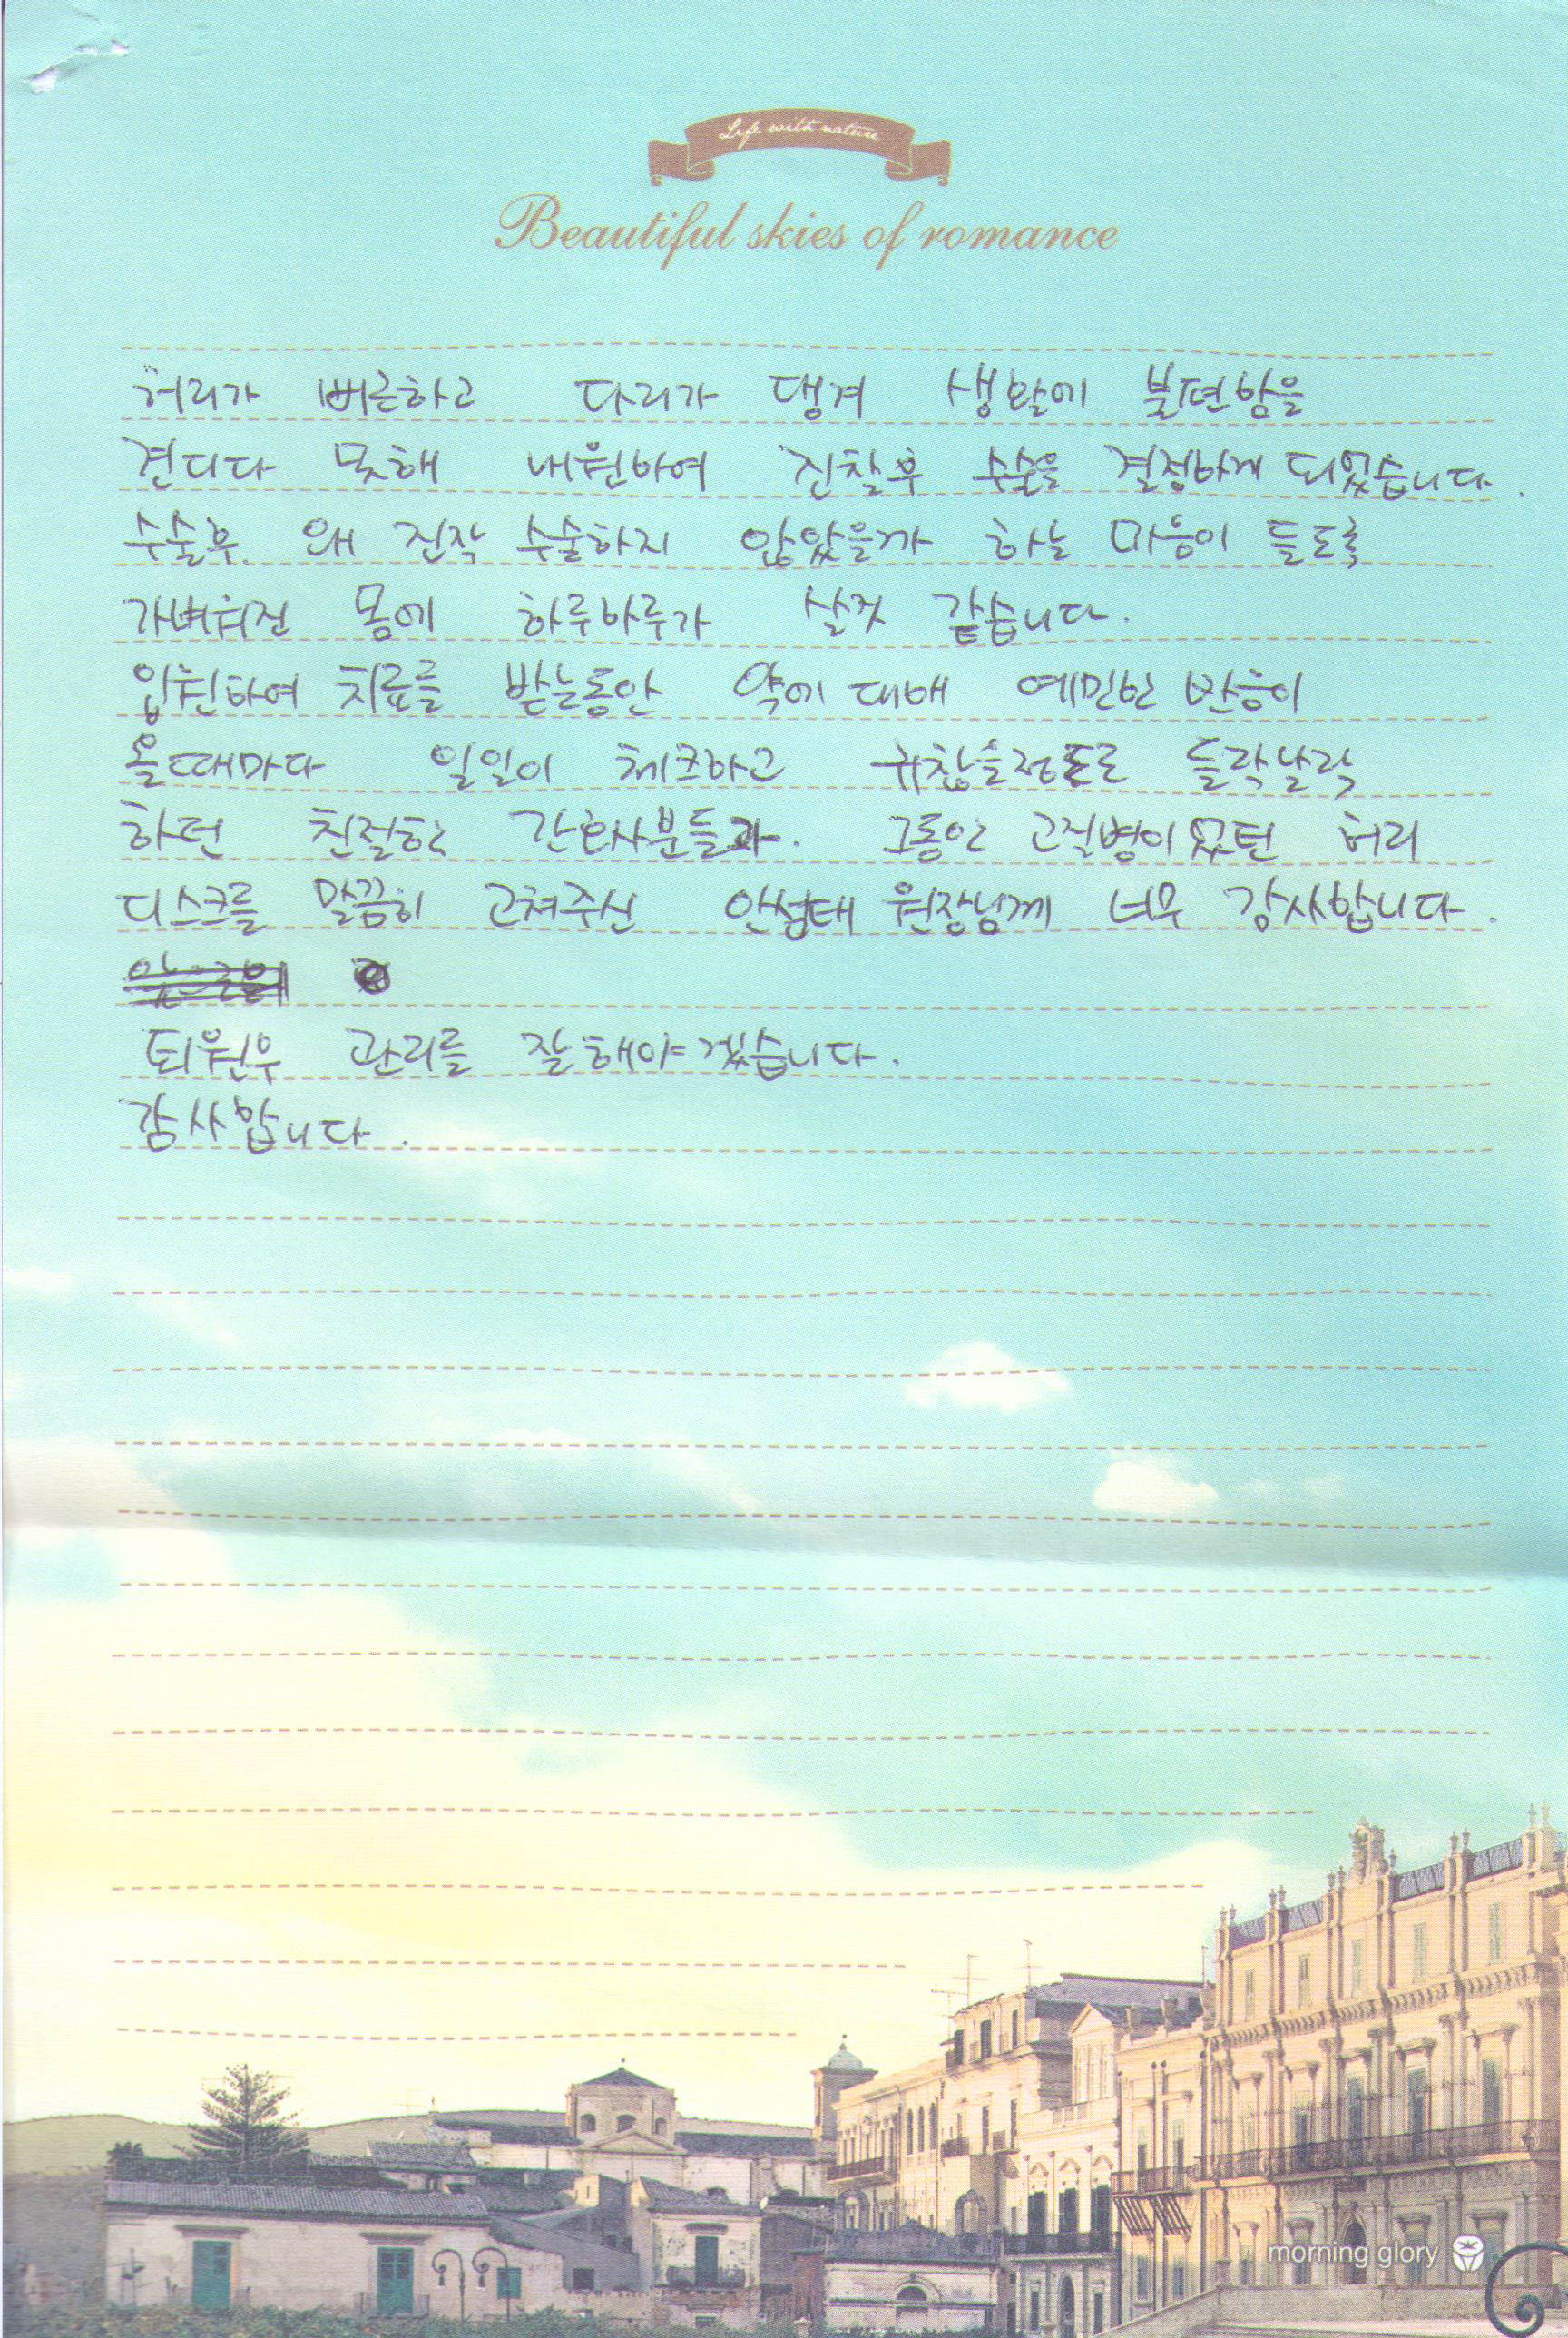 Life with nature
Beautiful skies of romance
허리가 뻐근하고 다리가 댕겨 생활에 불편함을
견디다 못해 내원하여 진찰후 수술을 결정하게 되었습니다.
수술후. 왜 진작 수술하지 않았을까 하는 마음이 들도록
가벼워진 몸에 하루하루가 살것 같습니다.
입원하여 치료를 받는동안 약에 대해 예민한 반응이
올때마다 일일이 체크하고 귀찮을정도로 들락날락
하던 친절한 간호사분들과. 그동안 고질병이었던 허리
디스크를 말끔히 고쳐주신 안성태 원장님께 너무 감사합니다.
퇴원후 관리를 잘해야겠습니다.
감사합니다.
morning glory